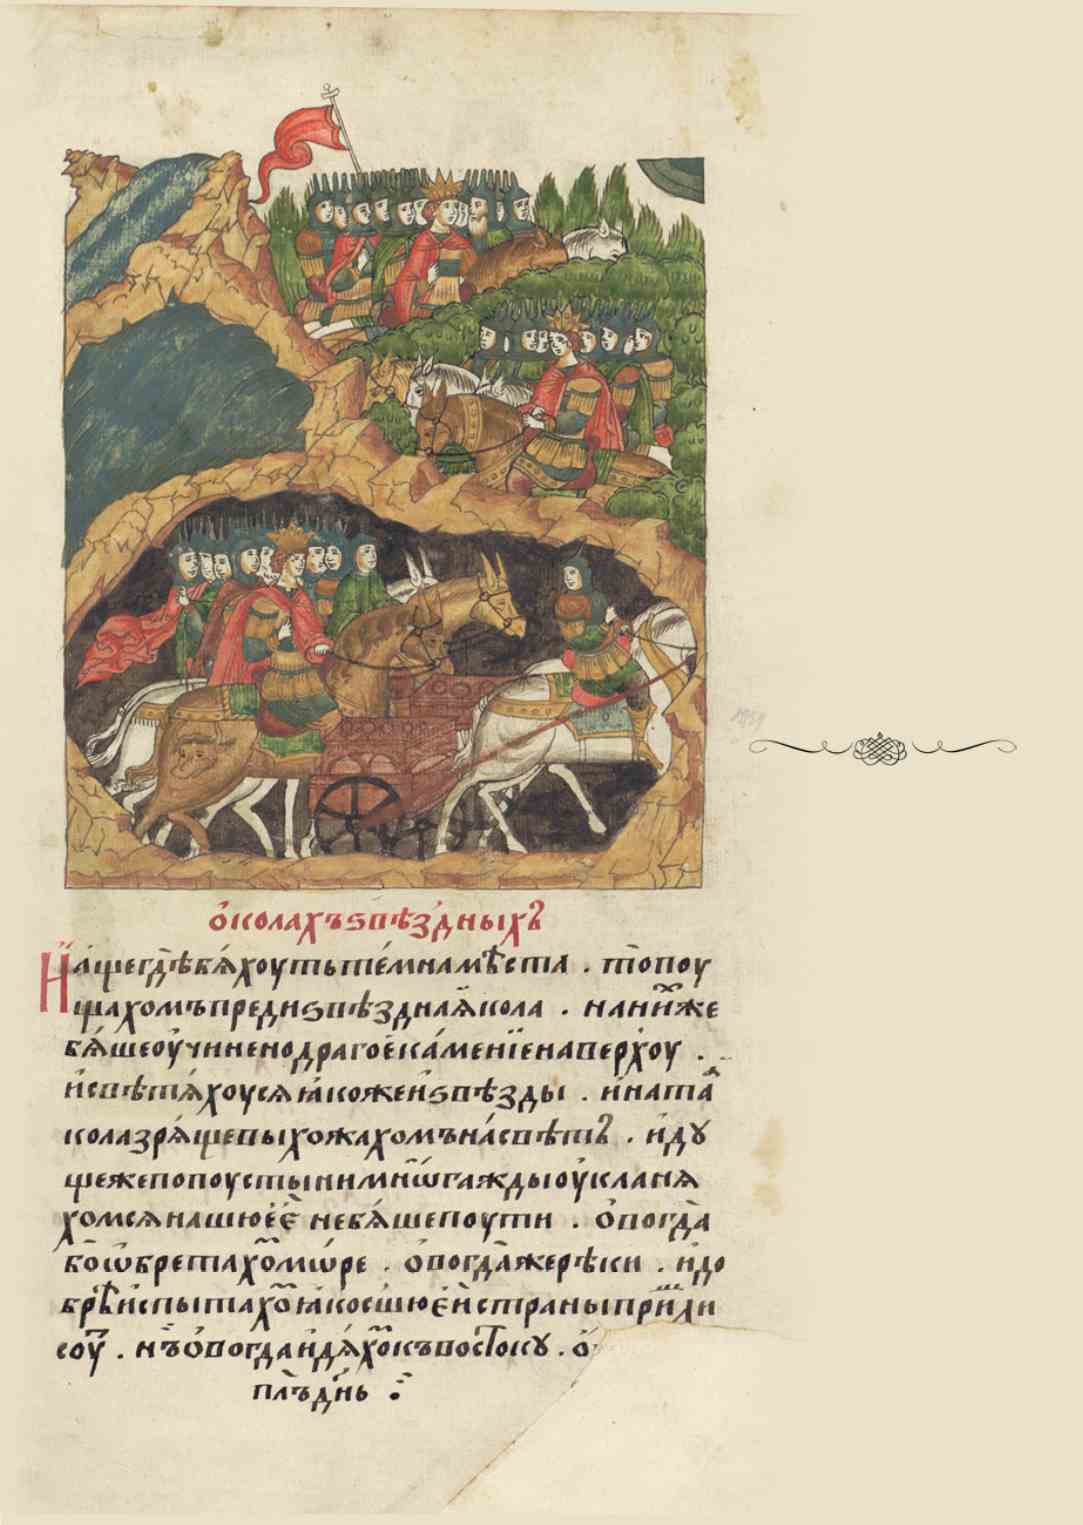 ѻ҆колахъѕвѣз́дныхъ
Н҆а́щегдⷭ҇ѣбѧ́хоутьте́мнамѣ́ста . топоу
щахомъпредиѕвѣзднаѧ҆кола . нанихже
бѧ́шеоу҆чиненодрагоека́менїенаверхоу .
и҆свѣтѧ́хоусѧꙗкожеиѕвѣзды . и҆ната
колазрѧ́щевыхожахомъна́свѣтъ . и҆дꙋ
щежепопоустынимнѡгаждыоу҆кланѧ
хомсѧнашюе҆ѐ небѧ́шепоути . ѻ҆вогда
боѡ҆бретахоⷨмѡ́ре . ѻ҆вогдажерѣки . и҆до
брѣи҆спытахоⷨꙗкосшюеи҆страныприⷣи
соу . нъѻ҆вогдаи҆дѧ́хоⷨкъвостокꙋ . ѻ҆
плъдн́ь